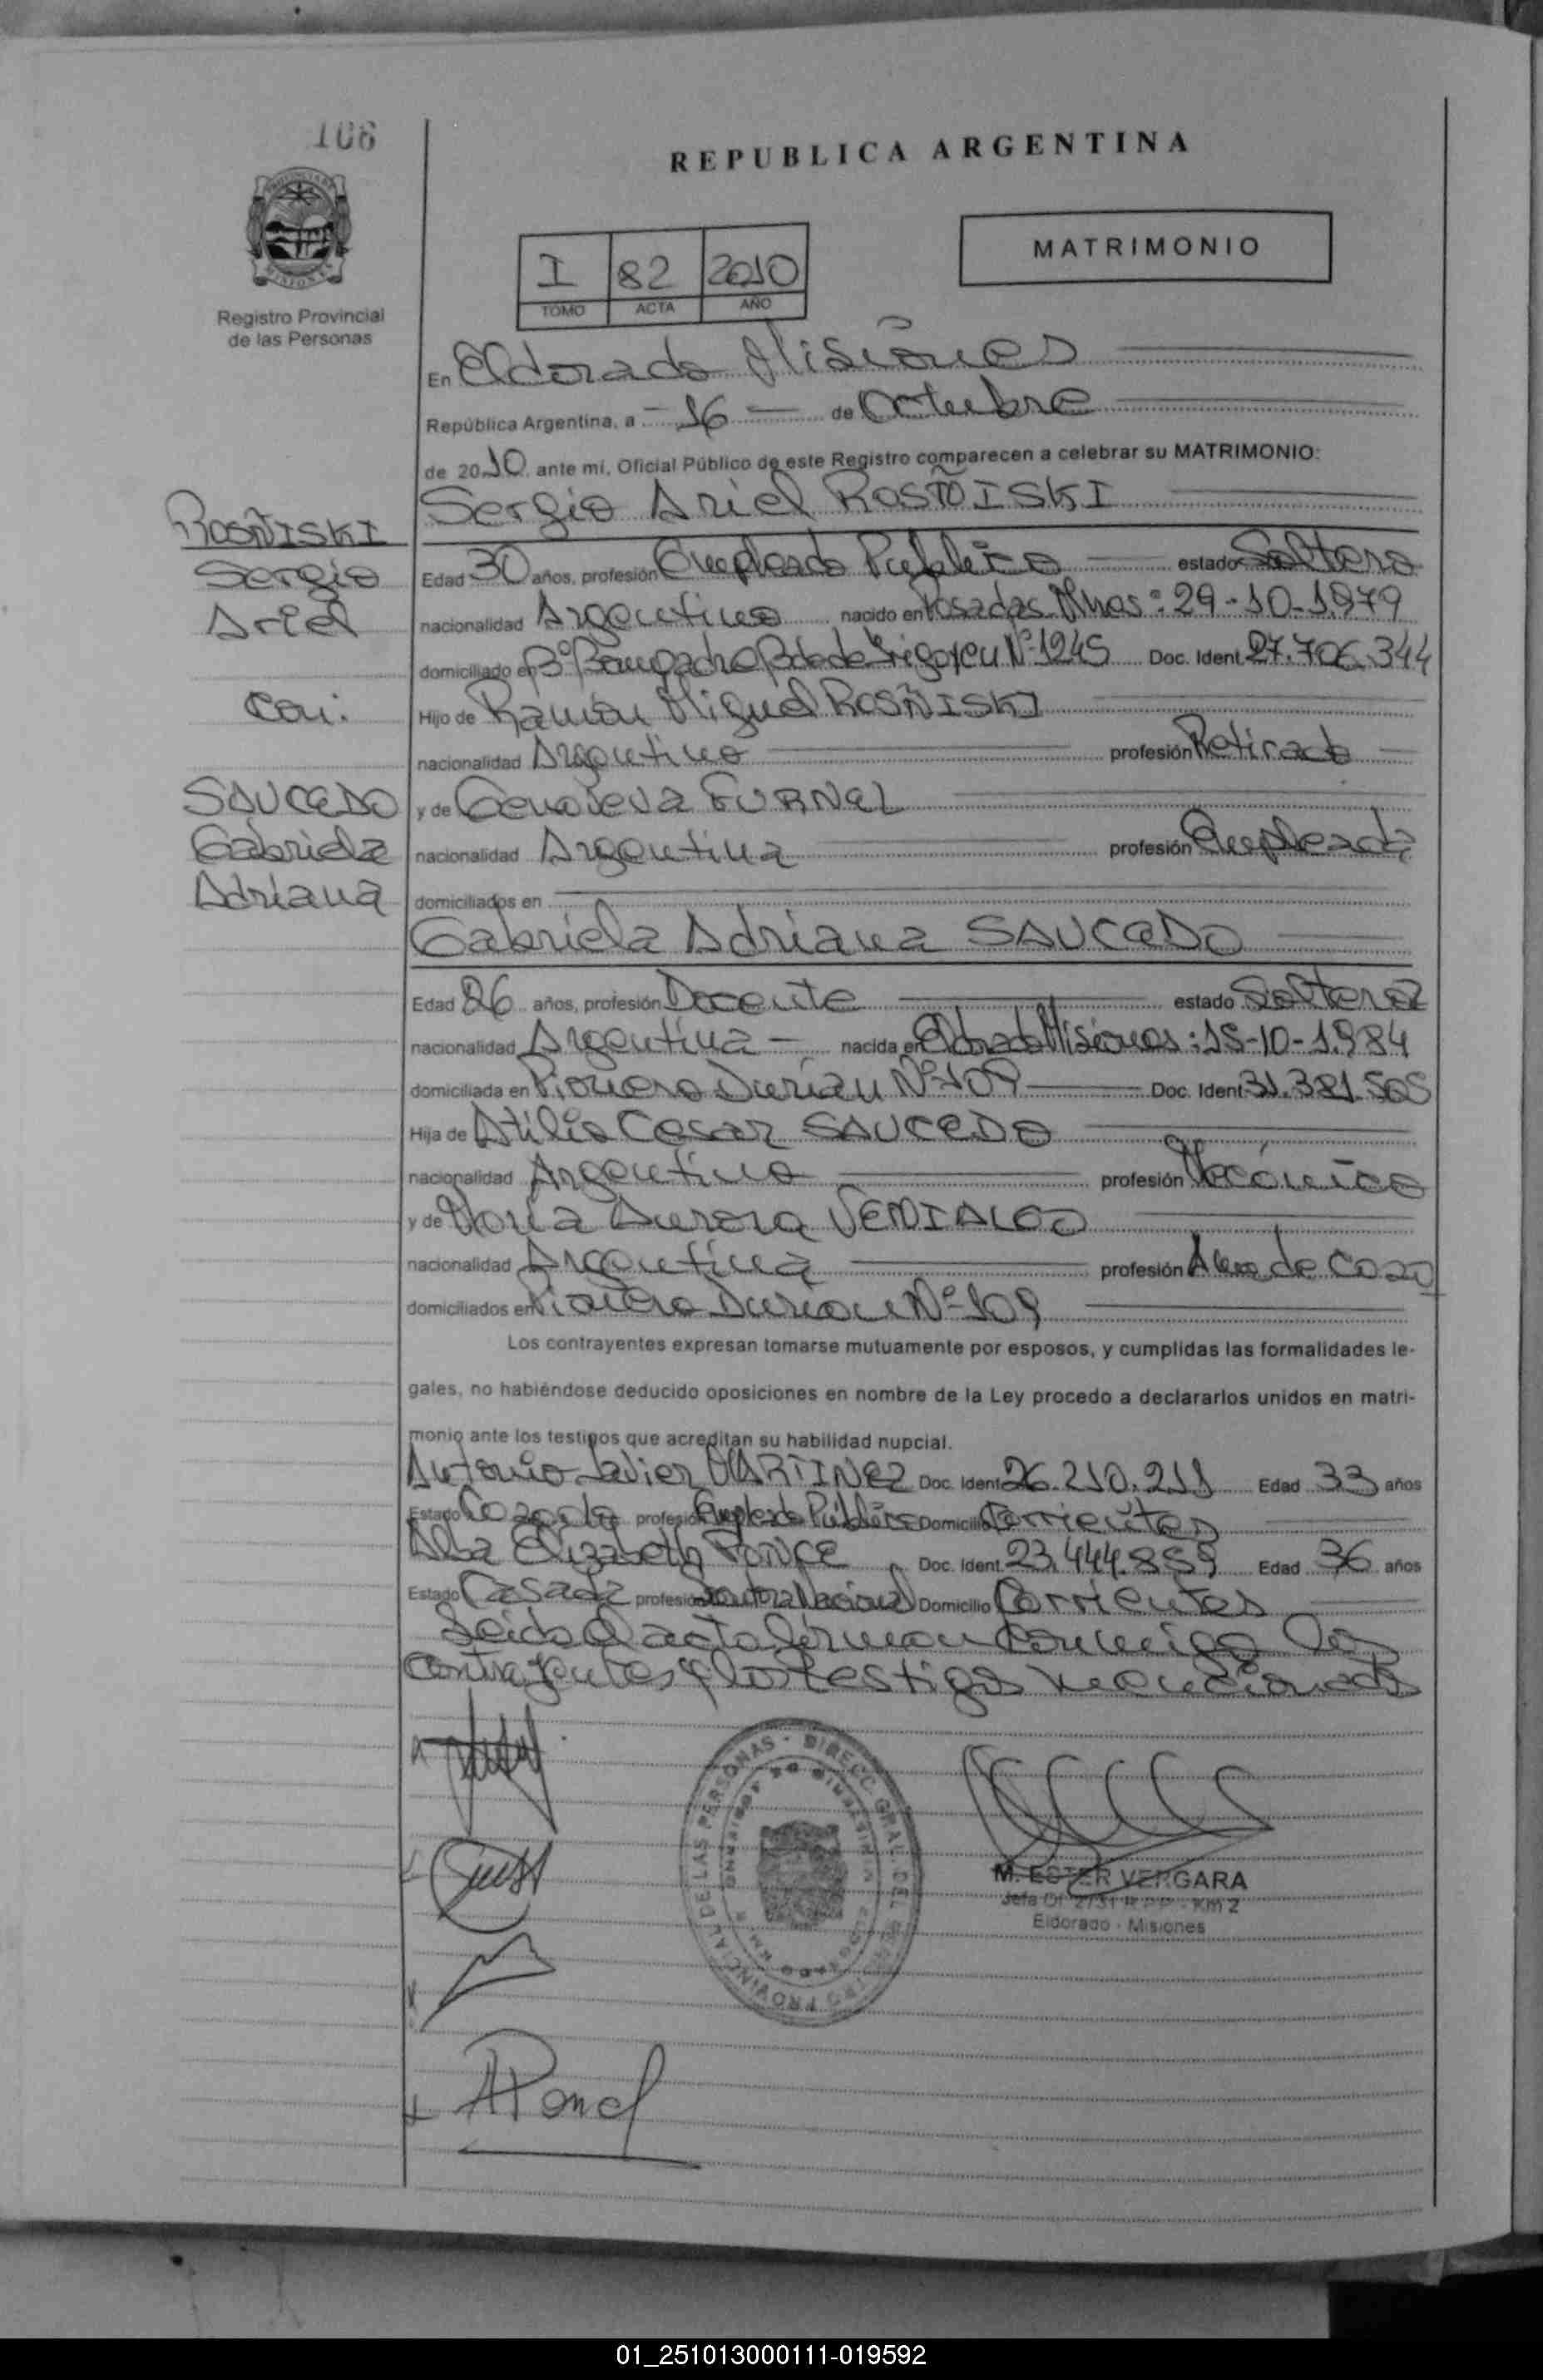 106
REPUBLICA ARGENTINA
MATRIMONIO
I 82 2010
TOMO ACTA AÑO
Registro Provincial
de las Personas
En Eldorado Misiones
República Argentina, a 16 de Octubre
de 2010 ante mí, Oficial Público de este Registro comparecen a celebrar su MATRIMONIO:
Sergio Ariel ROSÑISKI
ROSÑISKI
Sergio
Ariel
Con:
SAUCEDO
Gabriela
Adriana
Edad 30 años, profesión Empleado Publico estado Soltero
nacionalidad Argentino nacido en Posadas Mnes: 29-10-1.979
domiciliado en Bº Yrigoyen Nº 1245 Doc. Ident. 27.706.344
Hijo de Ramón Miguel ROSÑISKI
nacionalidad Argentino profesión Retirado
y de Genoveva FURNEL
nacionalidad Argentina profesión Empleada
domiciliados en
Gabriela Adriana SAUCEDO
Edad 26 años, profesión Docente estado Soltera
nacionalidad Argentina nacida en Eldorado Misiones: 15-10-1.984
domiciliada en Pionero Durian Nº 109 Doc. Ident. 31.381.505
Hija de Atilio Cesar SAUCEDO
nacionalidad Argentino profesión Mecánico
y de María Aurora
nacionalidad Argentina profesión Ama de Casa
domiciliados en Pionero Durian Nº 109
Los contrayentes expresan tomarse mutuamente por esposos, y cumplidas las formalidades le-
gales, no habiéndose deducido oposiciones en nombre de la Ley procedo a declararlos unidos en matri-
monio ante los testigos que acreditan su habilidad nupcial.
Antonio Javier MARTINEZ Doc. Ident. 26.210.211 Edad 33 años
Estado Casado profesión Empleado Público Domicilio Corrientes
Alba Elizabeth PONCE Doc. Ident. 23.444.859 Edad 36 años
Estado Casada profesión Domicilio Corrientes
Leido el acta firman conmigo los
contrayentes y los testigos mencionados
PROVINCIAL DE LAS PERSONAS - DIRECC. GRAL. DEL REGISTRO
M. ESTER VERGARA
Jefa Of. 2731 R.P.P. - Km 2
Eldorado - Misiones
APonce
01_251013000111-019592